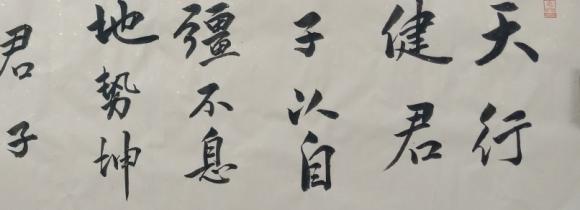 天行
健君
子以自
彊不息
地势坤
君子